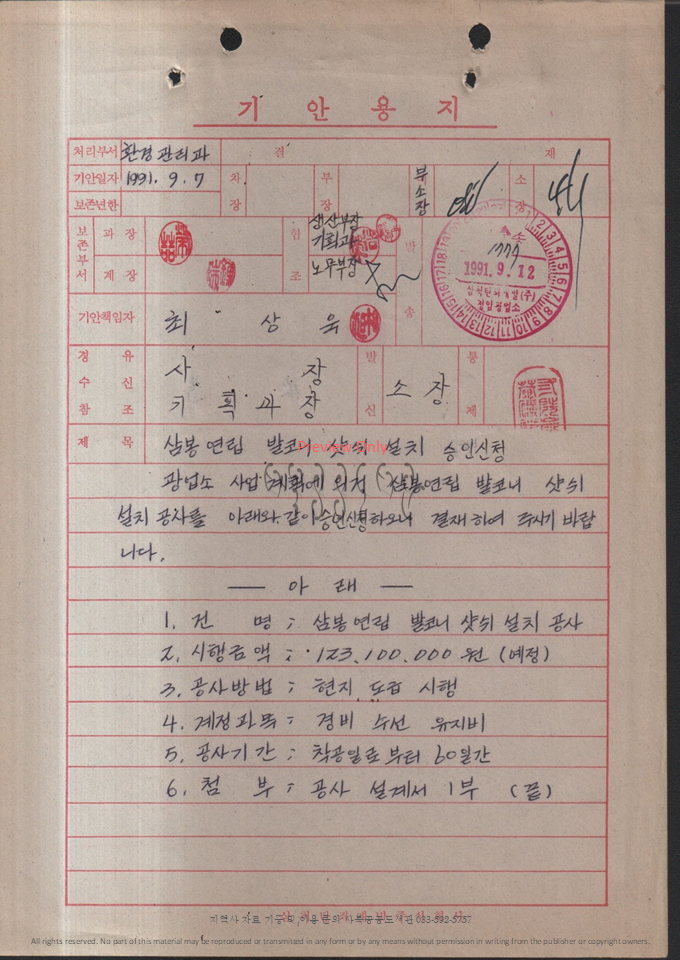 기 안 용 지
처리부서 환경관리과 결 재
기안일자 1991. 9. 7 차 장 부 장 부소장 소 장
보존년한
보존부서 과 장 협 조 생산부장 발 송
기획과
계 장 노무부장
접수
1991. 9. 12
기안책임자 최 상 욱
경 유 사 장 발 신 소 장 통 제
수 신
참 조 기 획 과 장
제 목 삼봉연립 발코니 샷쉬 설치 승인신청
Preview Only
광업소 사업계획에 의거 삼봉연립 발코니 샷쉬
설치 공사를 아래와 같이 승인신청하오니 결재하여 주시기 바랍
니다.
— 아 래 —
1. 건 명 ; 삼봉연립 발코니 샷쉬 설치 공사
2. 시행금액 ; 123,100,000 원 (예정)
3. 공사방법 ; 현지 도급 시행
4. 계정과목 ; 경비 수선 유지비
5. 공사기간 ; 착공일로부터 60일간
6. 첨 부 ; 공사 설계서 1부 (끝)
지역사 자료 기증 및 이용 문의 사북공공도서관 033-592-5757
All rights reserved. No part of this material may be reproduced or transmitted in any form or by any means without permission in writing from the publisher or copyright owners.